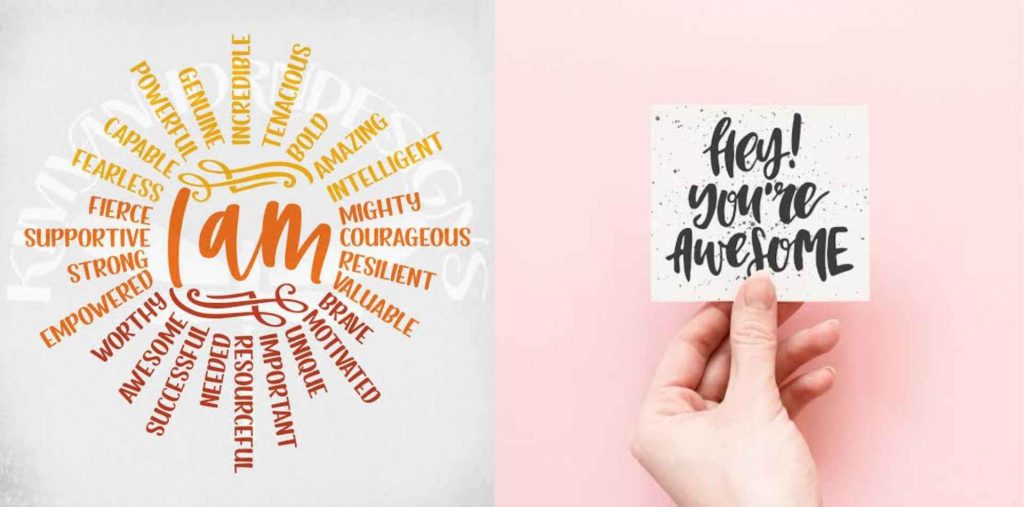 I am
INCREDIBLE
TENACIOUS
BOLD
AMAZING
INTELLIGENT
MIGHTY
COURAGEOUS
RESILIENT
VALUABLE
BRAVE
MOTIVATED
UNIQUE
IMPORTANT
RESOURCEFUL
NEEDED
SUCCESSFUL
AWESOME
WORTHY
EMPOWERED
STRONG
SUPPORTIVE
FIERCE
FEARLESS
CAPABLE
POWERFUL
GENUINE
Hey!
you're
AWESOME